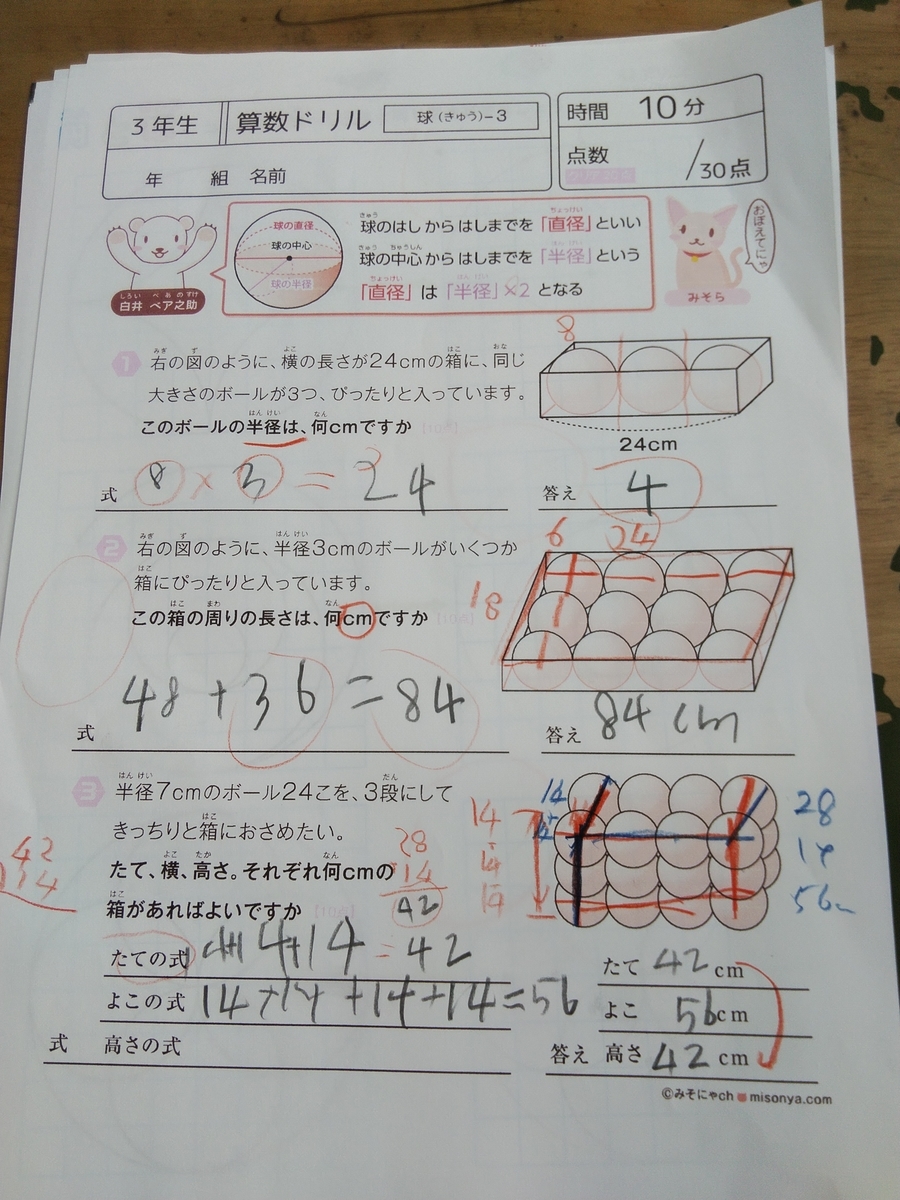 3年生 算数ドリル 球(きゅう)-3 時間 10分
年 組 名前 点数 /30点
球の直径
球の中心
球の半径
球のはしからはしまでを「直径」といい
球の中心からはしまでを「半径」という
「直径」は「半径」×2となる
白井 ベア之助
みそら
おぼえてにゃ
1 右の図のように、横の長さが24cmの箱に、同じ
大きさのボールが3つ、ぴったりと入っています。
このボールの半径は、何cmですか
8
24cm
式 8×3=24 答え 4
2 右の図のように、半径3cmのボールがいくつか
箱にぴったりと入っています。
この箱の周りの長さは、何cmですか
6 24
18
式 48+36=84 答え 84cm
3 半径7cmのボール24こを、3段にして
きっちりと箱におさめたい。
たて、横、高さ。それぞれ何cmの
箱があればよいですか
28
14
42
14
14
14
14
28
14
56
42
たての式 14+14=42 たて 42cm
よこの式 14+14+14+14=56 よこ 56cm
式 高さの式 答え 高さ 42cm
©みそにゃch misonya.com